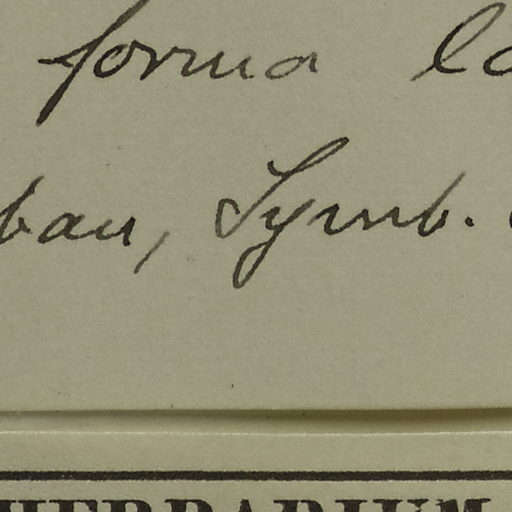 forma la
ban, Symb.
HERBARIUM